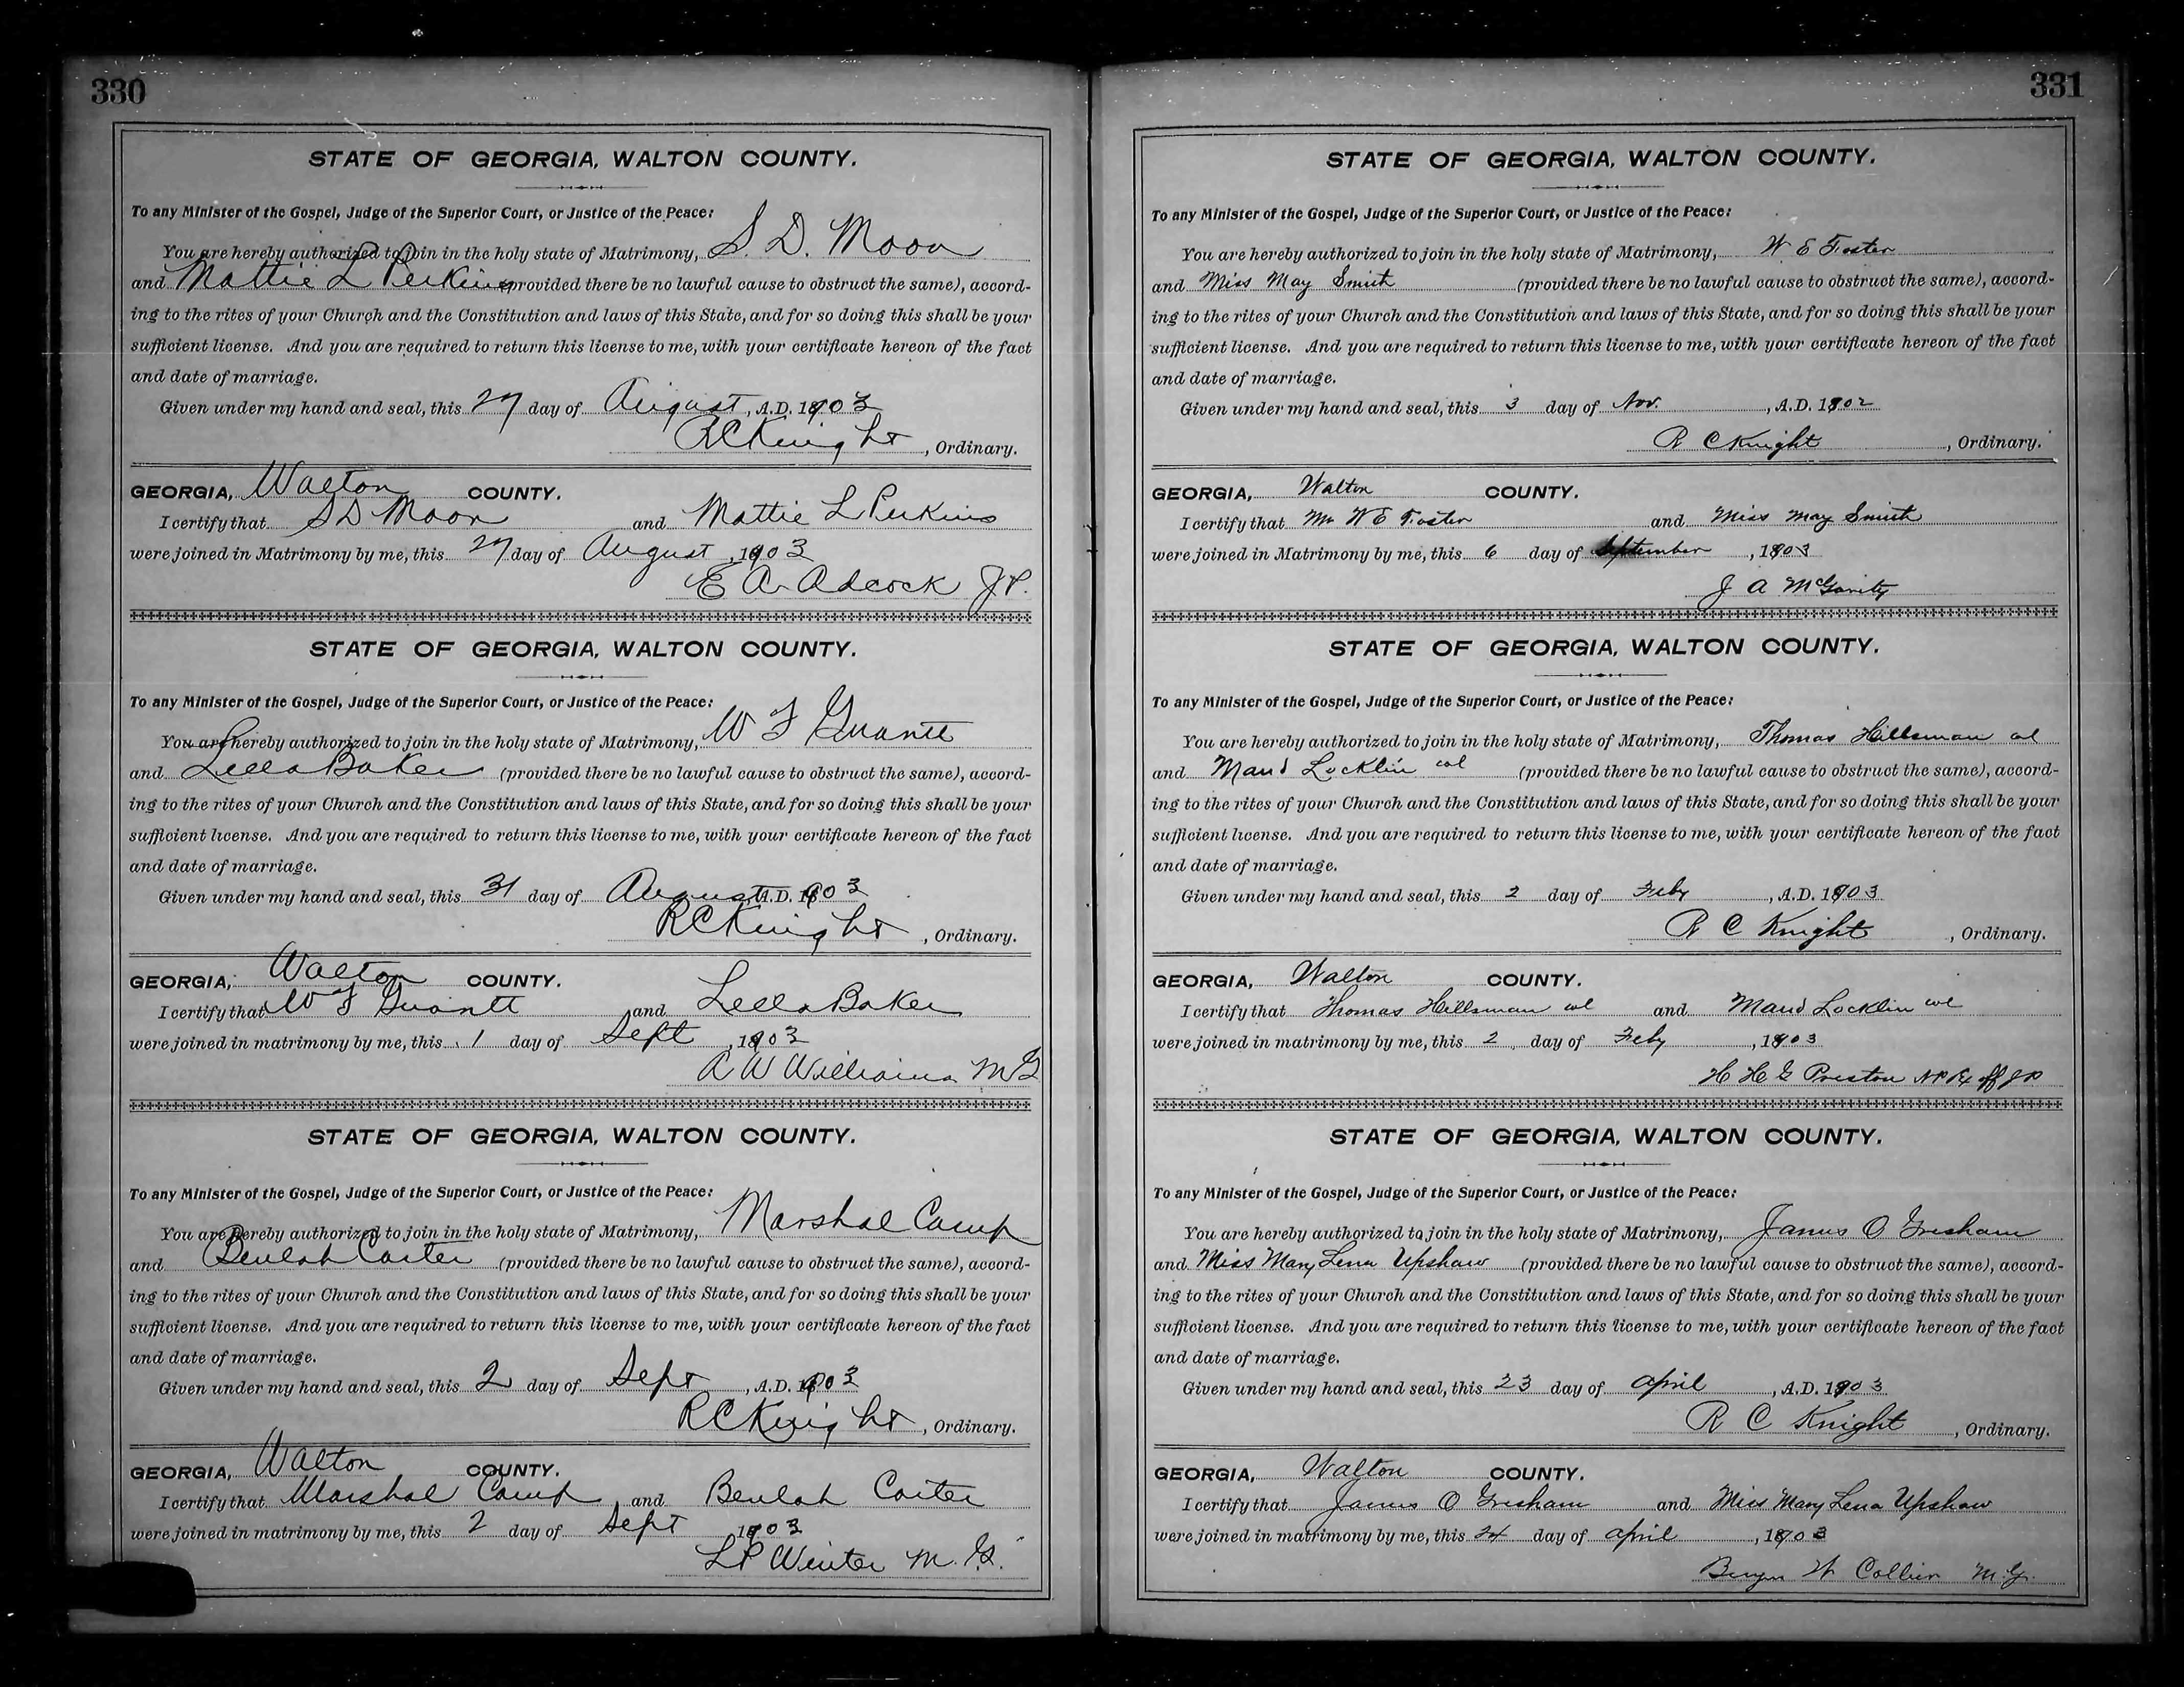 330
STATE OF GEORGIA, WALTON COUNTY.
To any Minister of the Gospel, Judge of the Superior Court, or Justice of the Peace:
You are hereby authorized to join in the holy state of Matrimony, S. D. Moon
and Mattie L Perkins (provided there be no lawful cause to obstruct the same), accord-
ing to the rites of your Church and the Constitution and laws of this State, and for so doing this shall be your
sufficient license. And you are required to return this license to me, with your certificate hereon of the fact
and date of marriage.
Given under my hand and seal, this 27 day of August, A.D. 1903
R C Knight, Ordinary.
GEORGIA, Walton COUNTY.
I certify that S D Moon and Mattie L Perkins
were joined in Matrimony by me, this 27 day of August, 1903
E A Adcock J.P.
STATE OF GEORGIA, WALTON COUNTY.
To any Minister of the Gospel, Judge of the Superior Court, or Justice of the Peace:
You are hereby authorized to join in the holy state of Matrimony, W F
and Lella Baker (provided there be no lawful cause to obstruct the same), accord-
ing to the rites of your Church and the Constitution and laws of this State, and for so doing this shall be your
sufficient license. And you are required to return this license to me, with your certificate hereon of the fact
and date of marriage.
Given under my hand and seal, this 31 day of August A.D. 1903
R C Knight, Ordinary.
GEORGIA, Walton COUNTY.
I certify that W F and Lella Baker
were joined in matrimony by me, this 1 day of Sept, 1903
A W Williams M G
STATE OF GEORGIA, WALTON COUNTY.
To any Minister of the Gospel, Judge of the Superior Court, or Justice of the Peace:
You are hereby authorized to join in the holy state of Matrimony, Marshal Camp
and Beulah Carter (provided there be no lawful cause to obstruct the same), accord-
ing to the rites of your Church and the Constitution and laws of this State, and for so doing this shall be your
sufficient license. And you are required to return this license to me, with your certificate hereon of the fact
and date of marriage.
Given under my hand and seal, this 2 day of Sept, A.D. 1903
R C Knight, Ordinary.
GEORGIA, Walton COUNTY.
I certify that Marshal Camp and Beulah Carter
were joined in matrimony by me, this 2 day of Sept 1903
L P Winter M. G.
331
STATE OF GEORGIA, WALTON COUNTY.
To any Minister of the Gospel, Judge of the Superior Court, or Justice of the Peace:
You are hereby authorized to join in the holy state of Matrimony, W E Foster
and Miss May Smith (provided there be no lawful cause to obstruct the same), accord-
ing to the rites of your Church and the Constitution and laws of this State, and for so doing this shall be your
sufficient license. And you are required to return this license to me, with your certificate hereon of the fact
and date of marriage.
Given under my hand and seal, this 3 day of Nov., A.D. 1902
R C Knight, Ordinary.
GEORGIA, Walton COUNTY.
I certify that Mr W E Foster and Miss May Smith
were joined in Matrimony by me, this 6 day of September, 1903
J A McGarity
STATE OF GEORGIA, WALTON COUNTY.
To any Minister of the Gospel, Judge of the Superior Court, or Justice of the Peace:
You are hereby authorized to join in the holy state of Matrimony, Thomas Hillsman col
and Maud Locklin col (provided there be no lawful cause to obstruct the same), accord-
ing to the rites of your Church and the Constitution and laws of this State, and for so doing this shall be your
sufficient license. And you are required to return this license to me, with your certificate hereon of the fact
and date of marriage.
Given under my hand and seal, this 2 day of Feby, A.D. 1903
R C Knight, Ordinary.
GEORGIA, Walton COUNTY.
I certify that Thomas Hillsman col and Maud Locklin col
were joined in matrimony by me, this 2 day of Feby, 1903
H H G Preston N P Ex off J P
STATE OF GEORGIA, WALTON COUNTY.
To any Minister of the Gospel, Judge of the Superior Court, or Justice of the Peace:
You are hereby authorized to join in the holy state of Matrimony, James O Gresham
and Miss Mary Lena Upshaw (provided there be no lawful cause to obstruct the same), accord-
ing to the rites of your Church and the Constitution and laws of this State, and for so doing this shall be your
sufficient license. And you are required to return this license to me, with your certificate hereon of the fact
and date of marriage.
Given under my hand and seal, this 23 day of april, A.D. 1903
R C Knight, Ordinary.
GEORGIA, Walton COUNTY.
I certify that James O Gresham and Miss Mary Lena Upshaw
were joined in matrimony by me, this 24 day of april, 1903
W Collier M.G.